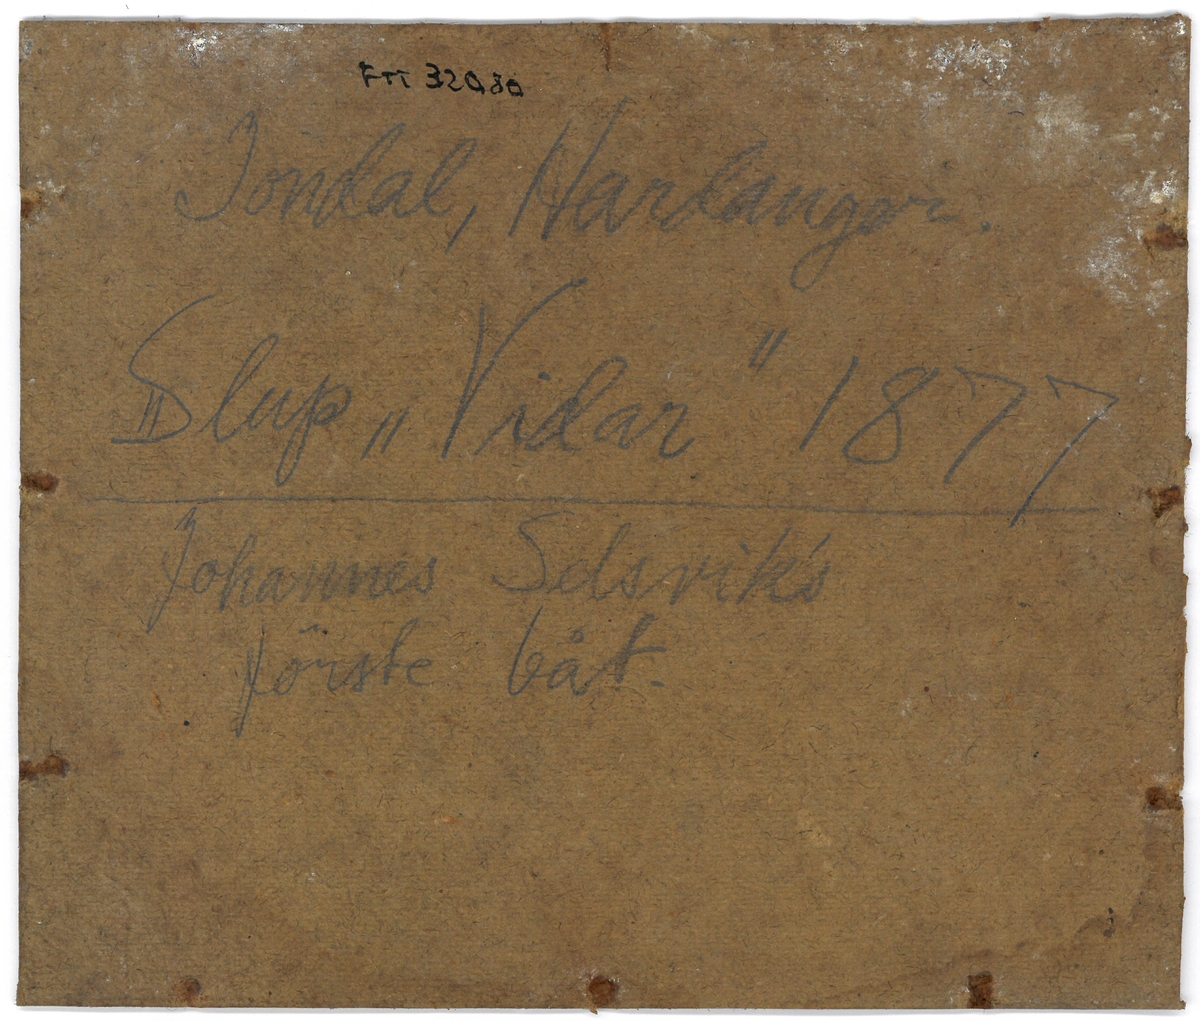 Fm 32080
Jondal, Hardanger.
Slup „Vidar" 1877
Johannes Selsvik's
förste båt.